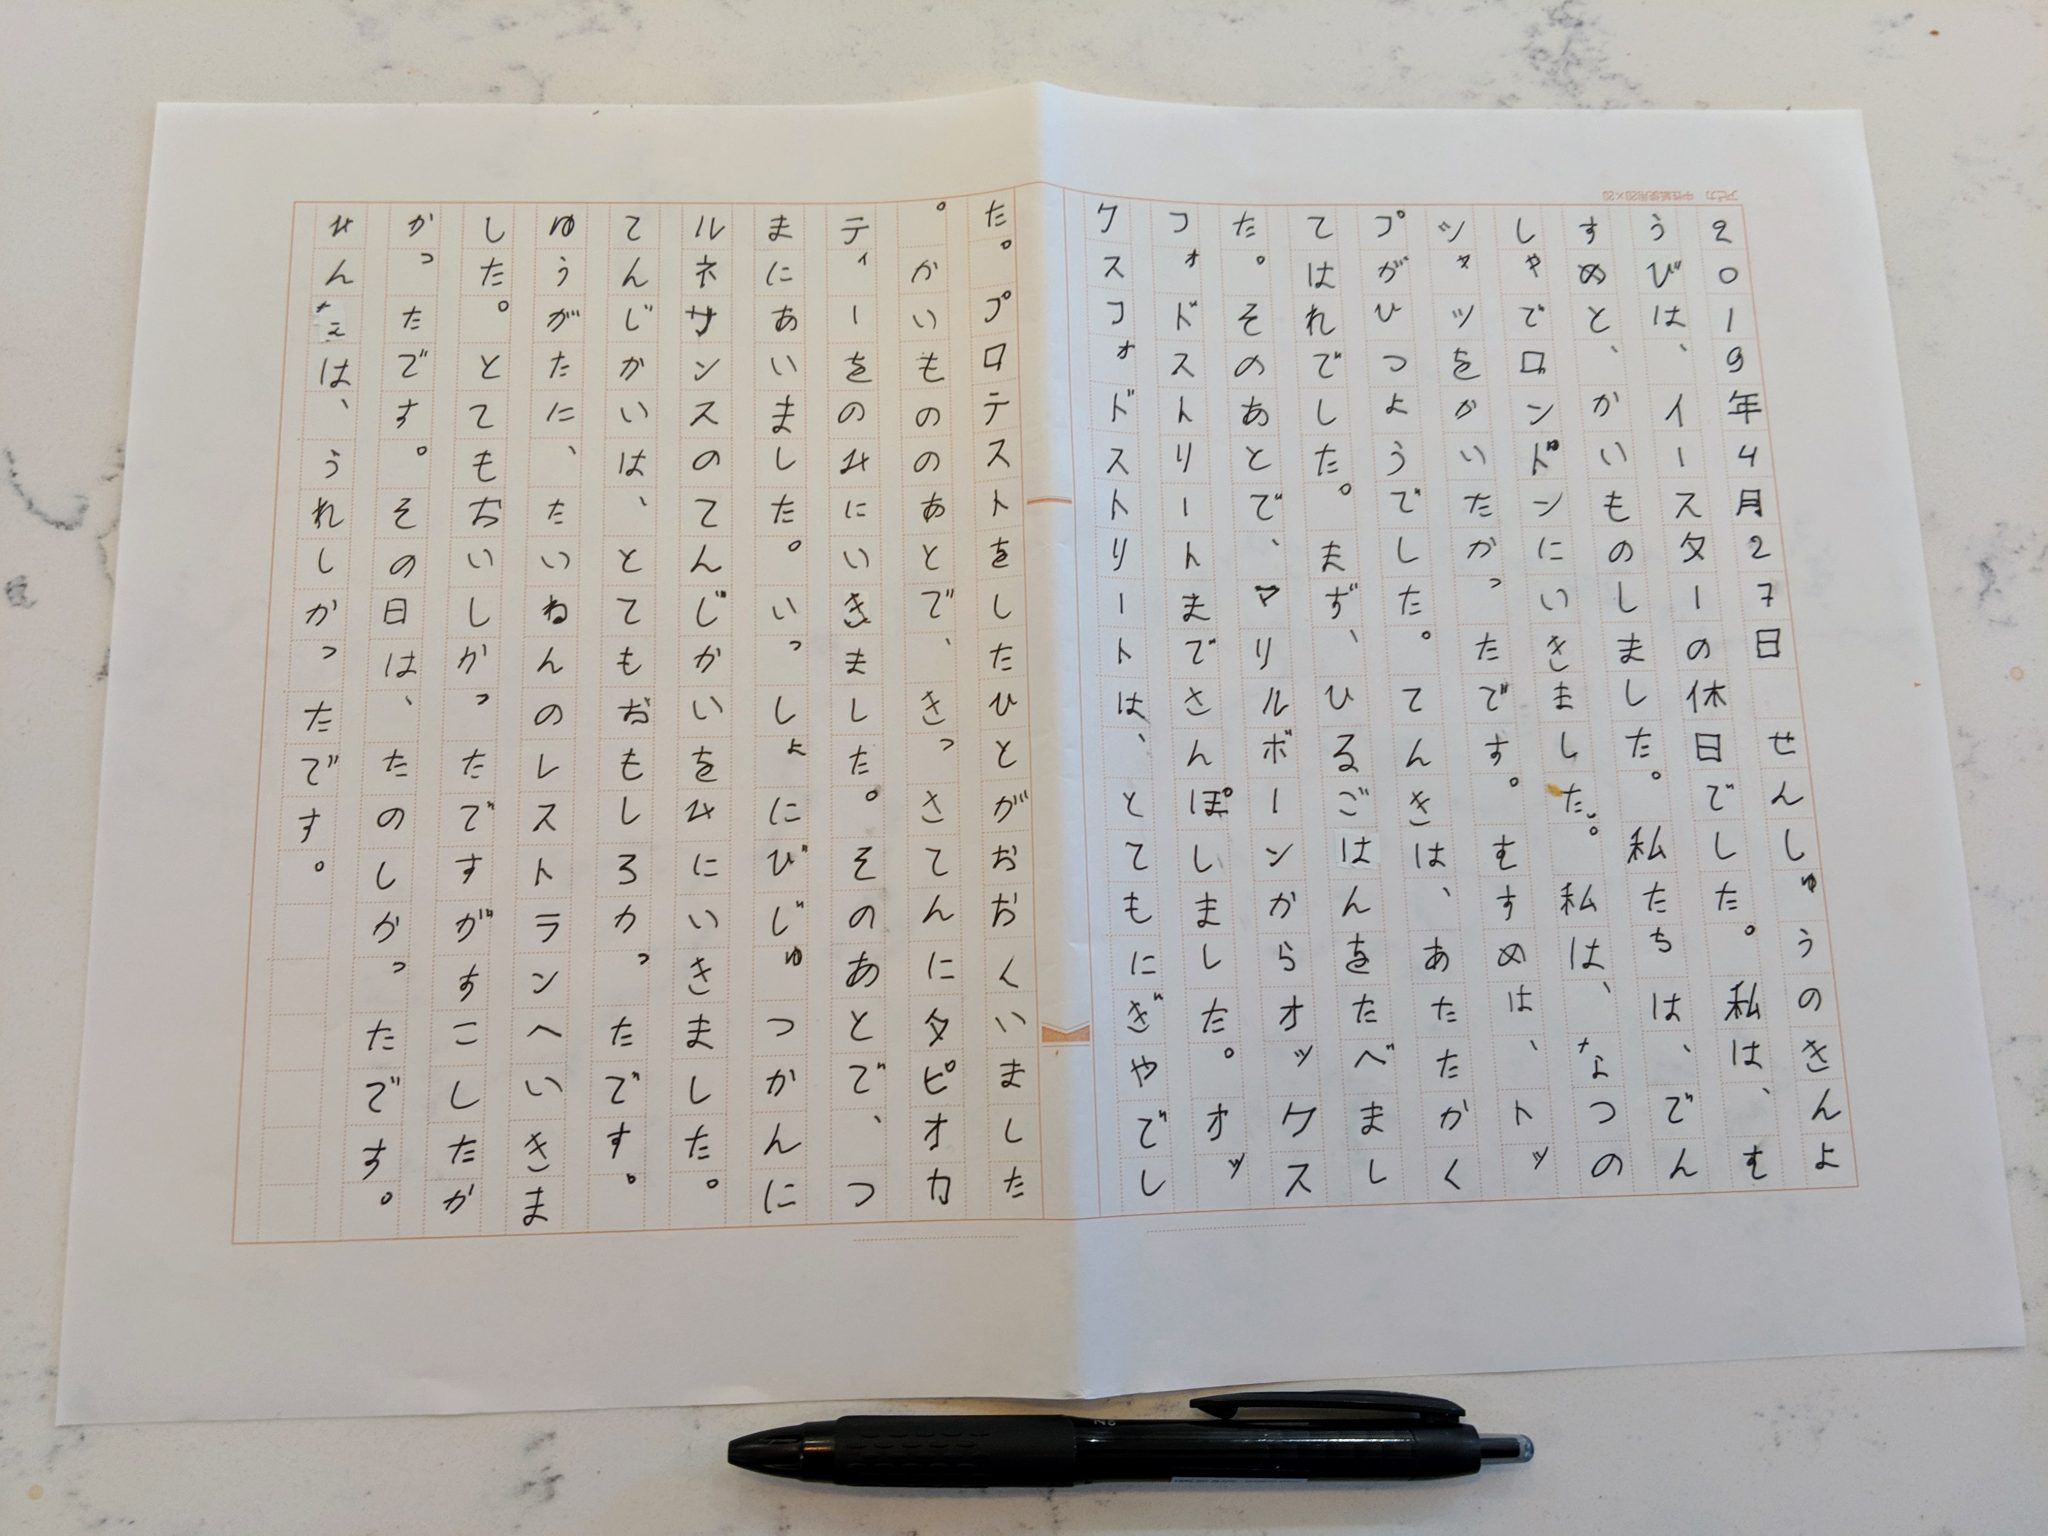 2019年4月27日　せんしゅうのきんよ
うびは、イースターの休日でした。私は、む
すめと、かいものしました。私たちは、でん
しゃでロンドンにいきました。私は、なつの
シャツをかいたかったです。むすめは、トッ
プがひつようでした。てんきは、あたたかく
てはれでした。まず、ひるごはんをたべまし
た。そのあとで、マリルボーンからオックス
フォドストリートまでさんぽしました。オッ
クスフォドストリートは、とてもにぎやでし
た。プロテストをしたひとがおおくいました
。かいもののあとで、きっさてんにタピオカ
ティーをのみにいきました。そのあとで、つ
まにあいました。いっしょにびじゅつかんに
ルネサンスのてんじかいをみにいきました。
てんじかいは、とてもおもしろかったです。
ゆうがたに、たいねんのレストランへいきま
した。とてもおいしかったですがすこしたか
かったです。その日は、たのしかったです。
みんなは、うれしかったです。
アピカ　中性紙使用20×20